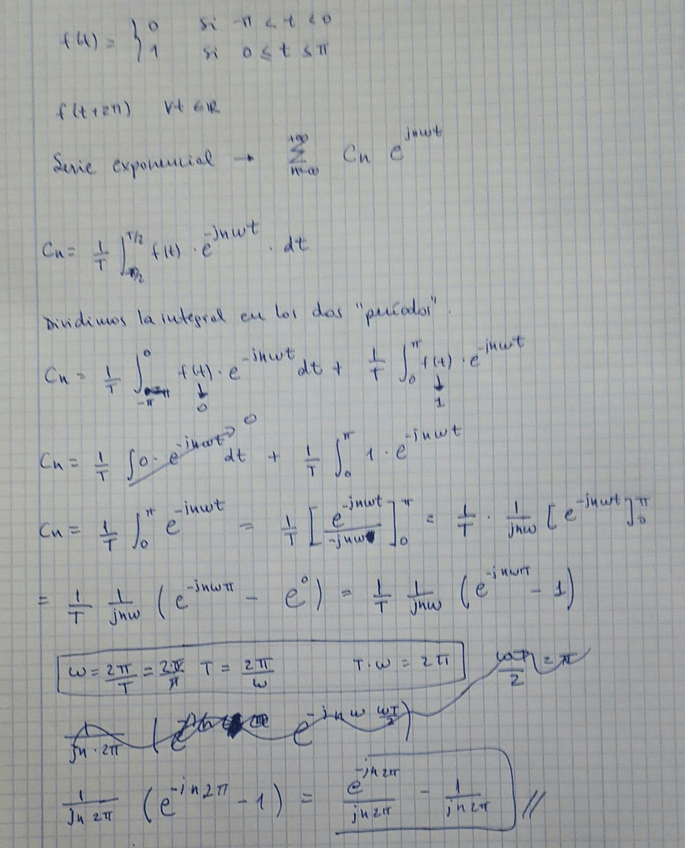 f(t) = { 0 si -π < t < 0
1 si 0 ≤ t ≤ π
f(t+2π) ∀t ∈ ℝ
Serie exponencial → Σ_{n=-∞}^{+∞} Cn e^{jnωt}
Cn = 1/T ∫_{-T/2}^{T/2} f(t) · e^{-jnωt} · dt
Dividimos la integral en los dos "periodos".
Cn = 1/T ∫_{-π}^{0} f(t) · e^{-jnωt} dt + 1/T ∫_0^π f(t) · e^{-jnωt}
↓ 0 ↓ 1
Cn = 1/T ∫ 0 · e^{-jnωt} dt → 0 + 1/T ∫_0^π 1 · e^{-jnωt}
Cn = 1/T ∫_0^π e^{-jnωt} = 1/T [e^{-jnωt} / -jnω]_0^π = 1/T · 1/jnω [e^{-jnωt}]_0^π
= 1/T 1/jnω (e^{-jnωπ} - e^0) = 1/T 1/jnω (e^{-jnωπ} - 1)
ω = 2π/T = 2π/π T = 2π/ω T·ω = 2π ωT/2 = π
1/jn·2π (e e^{-jnω ωT/2})
1/jn2π (e^{-jn2π} - 1) = e^{-jn2π}/jn2π - 1/jn2π //